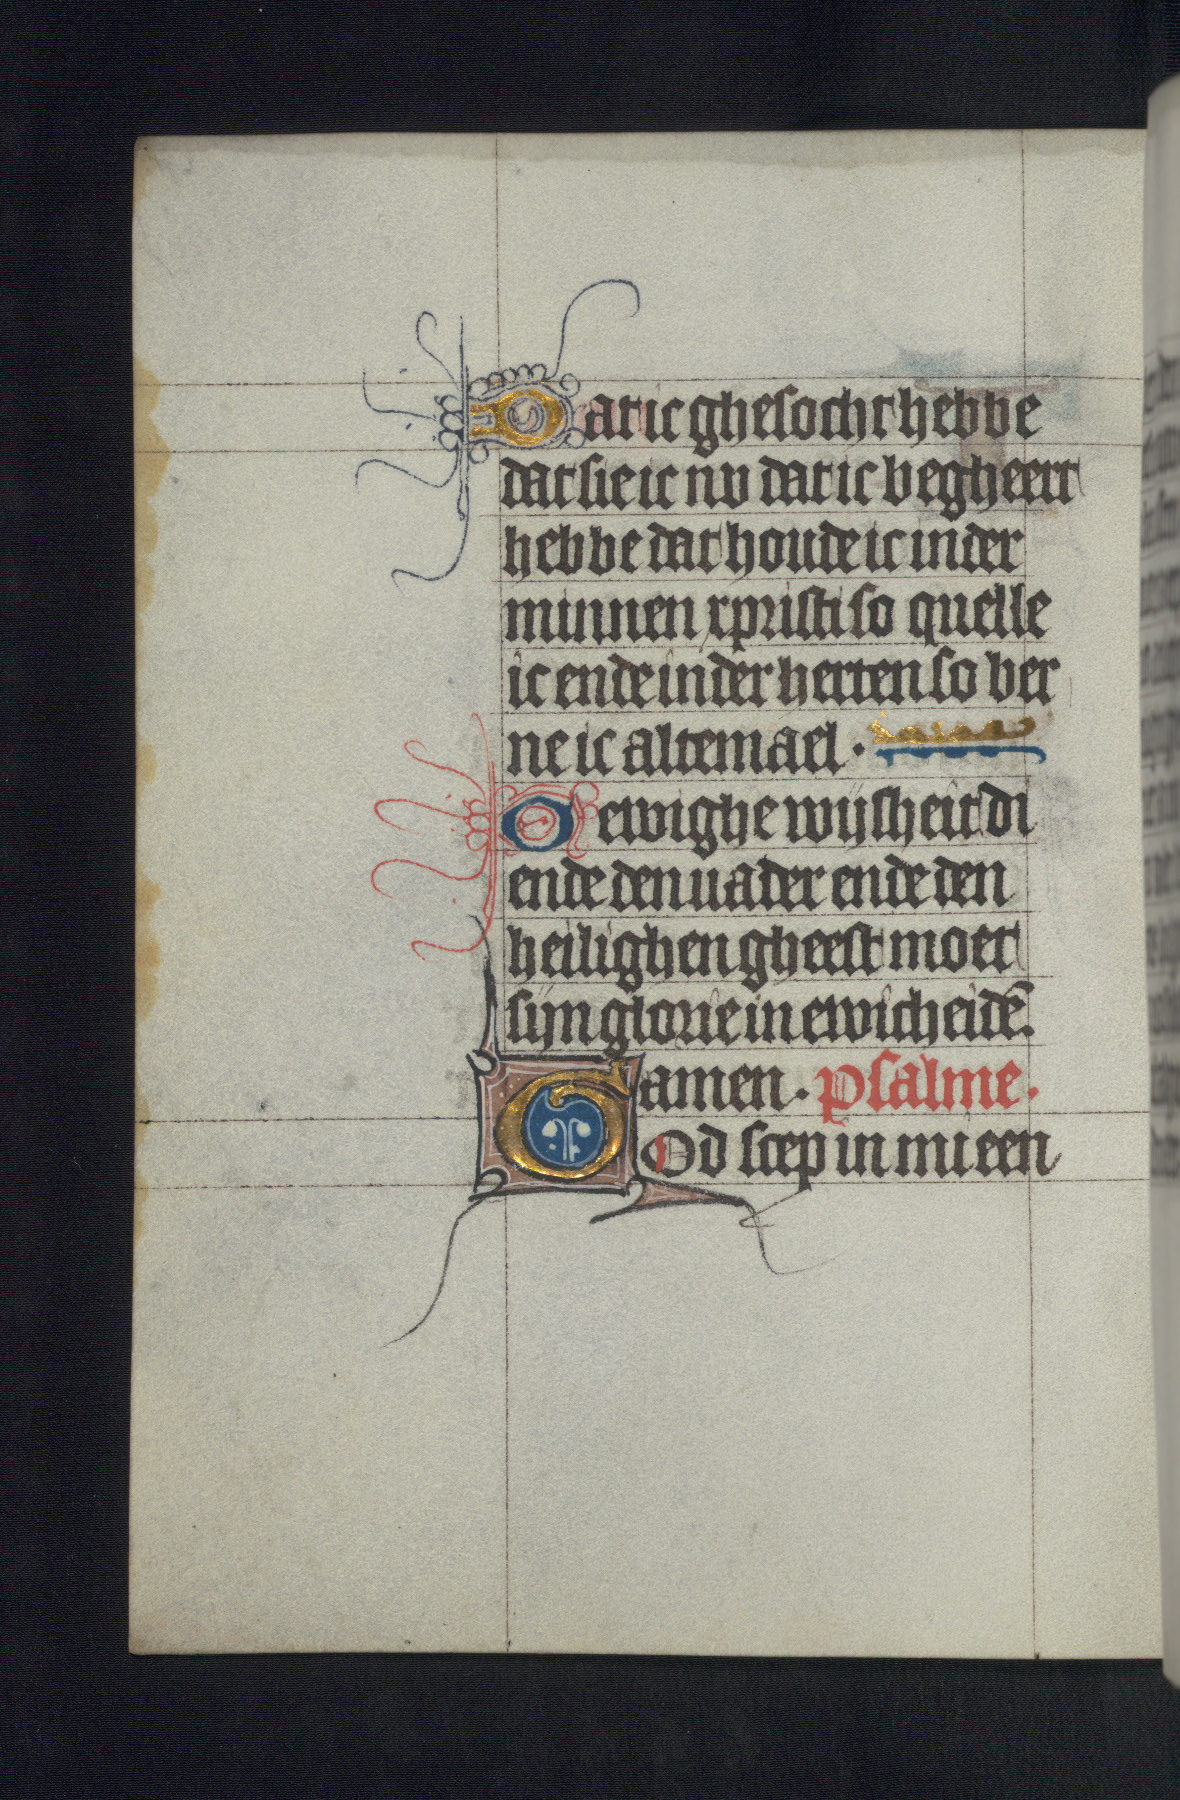 Dat ic ghesocht hebbe
dat sie ic nv dat ic begheert
hebbe dat houde ic in der
minnen xpristi so quelle
ic ende in der herten so ber
ne ic altemael ·
O ewighe wijsheit di
ende den uader ende den
heilighen gheest moet
sijn glorie in ewicheidē.
amen · psalme ·
GOd scep in mi een